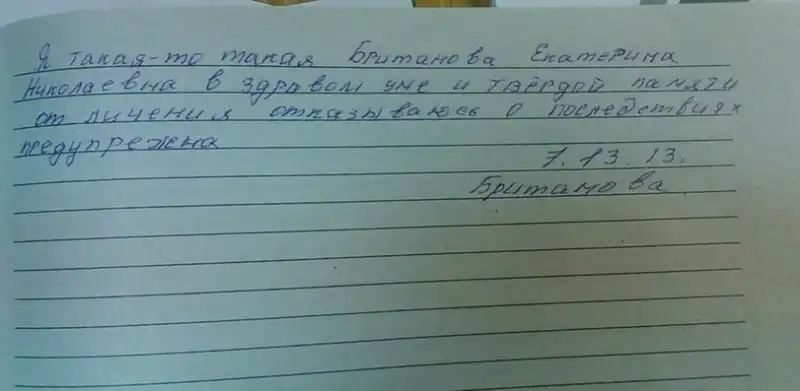 Я такая-то такая Британова Екатерина
Николаевна в здравом уме и твёрдой памяти
от личения отказываюсь о последствиях
предупрежена
7. 13. 13.
Британова